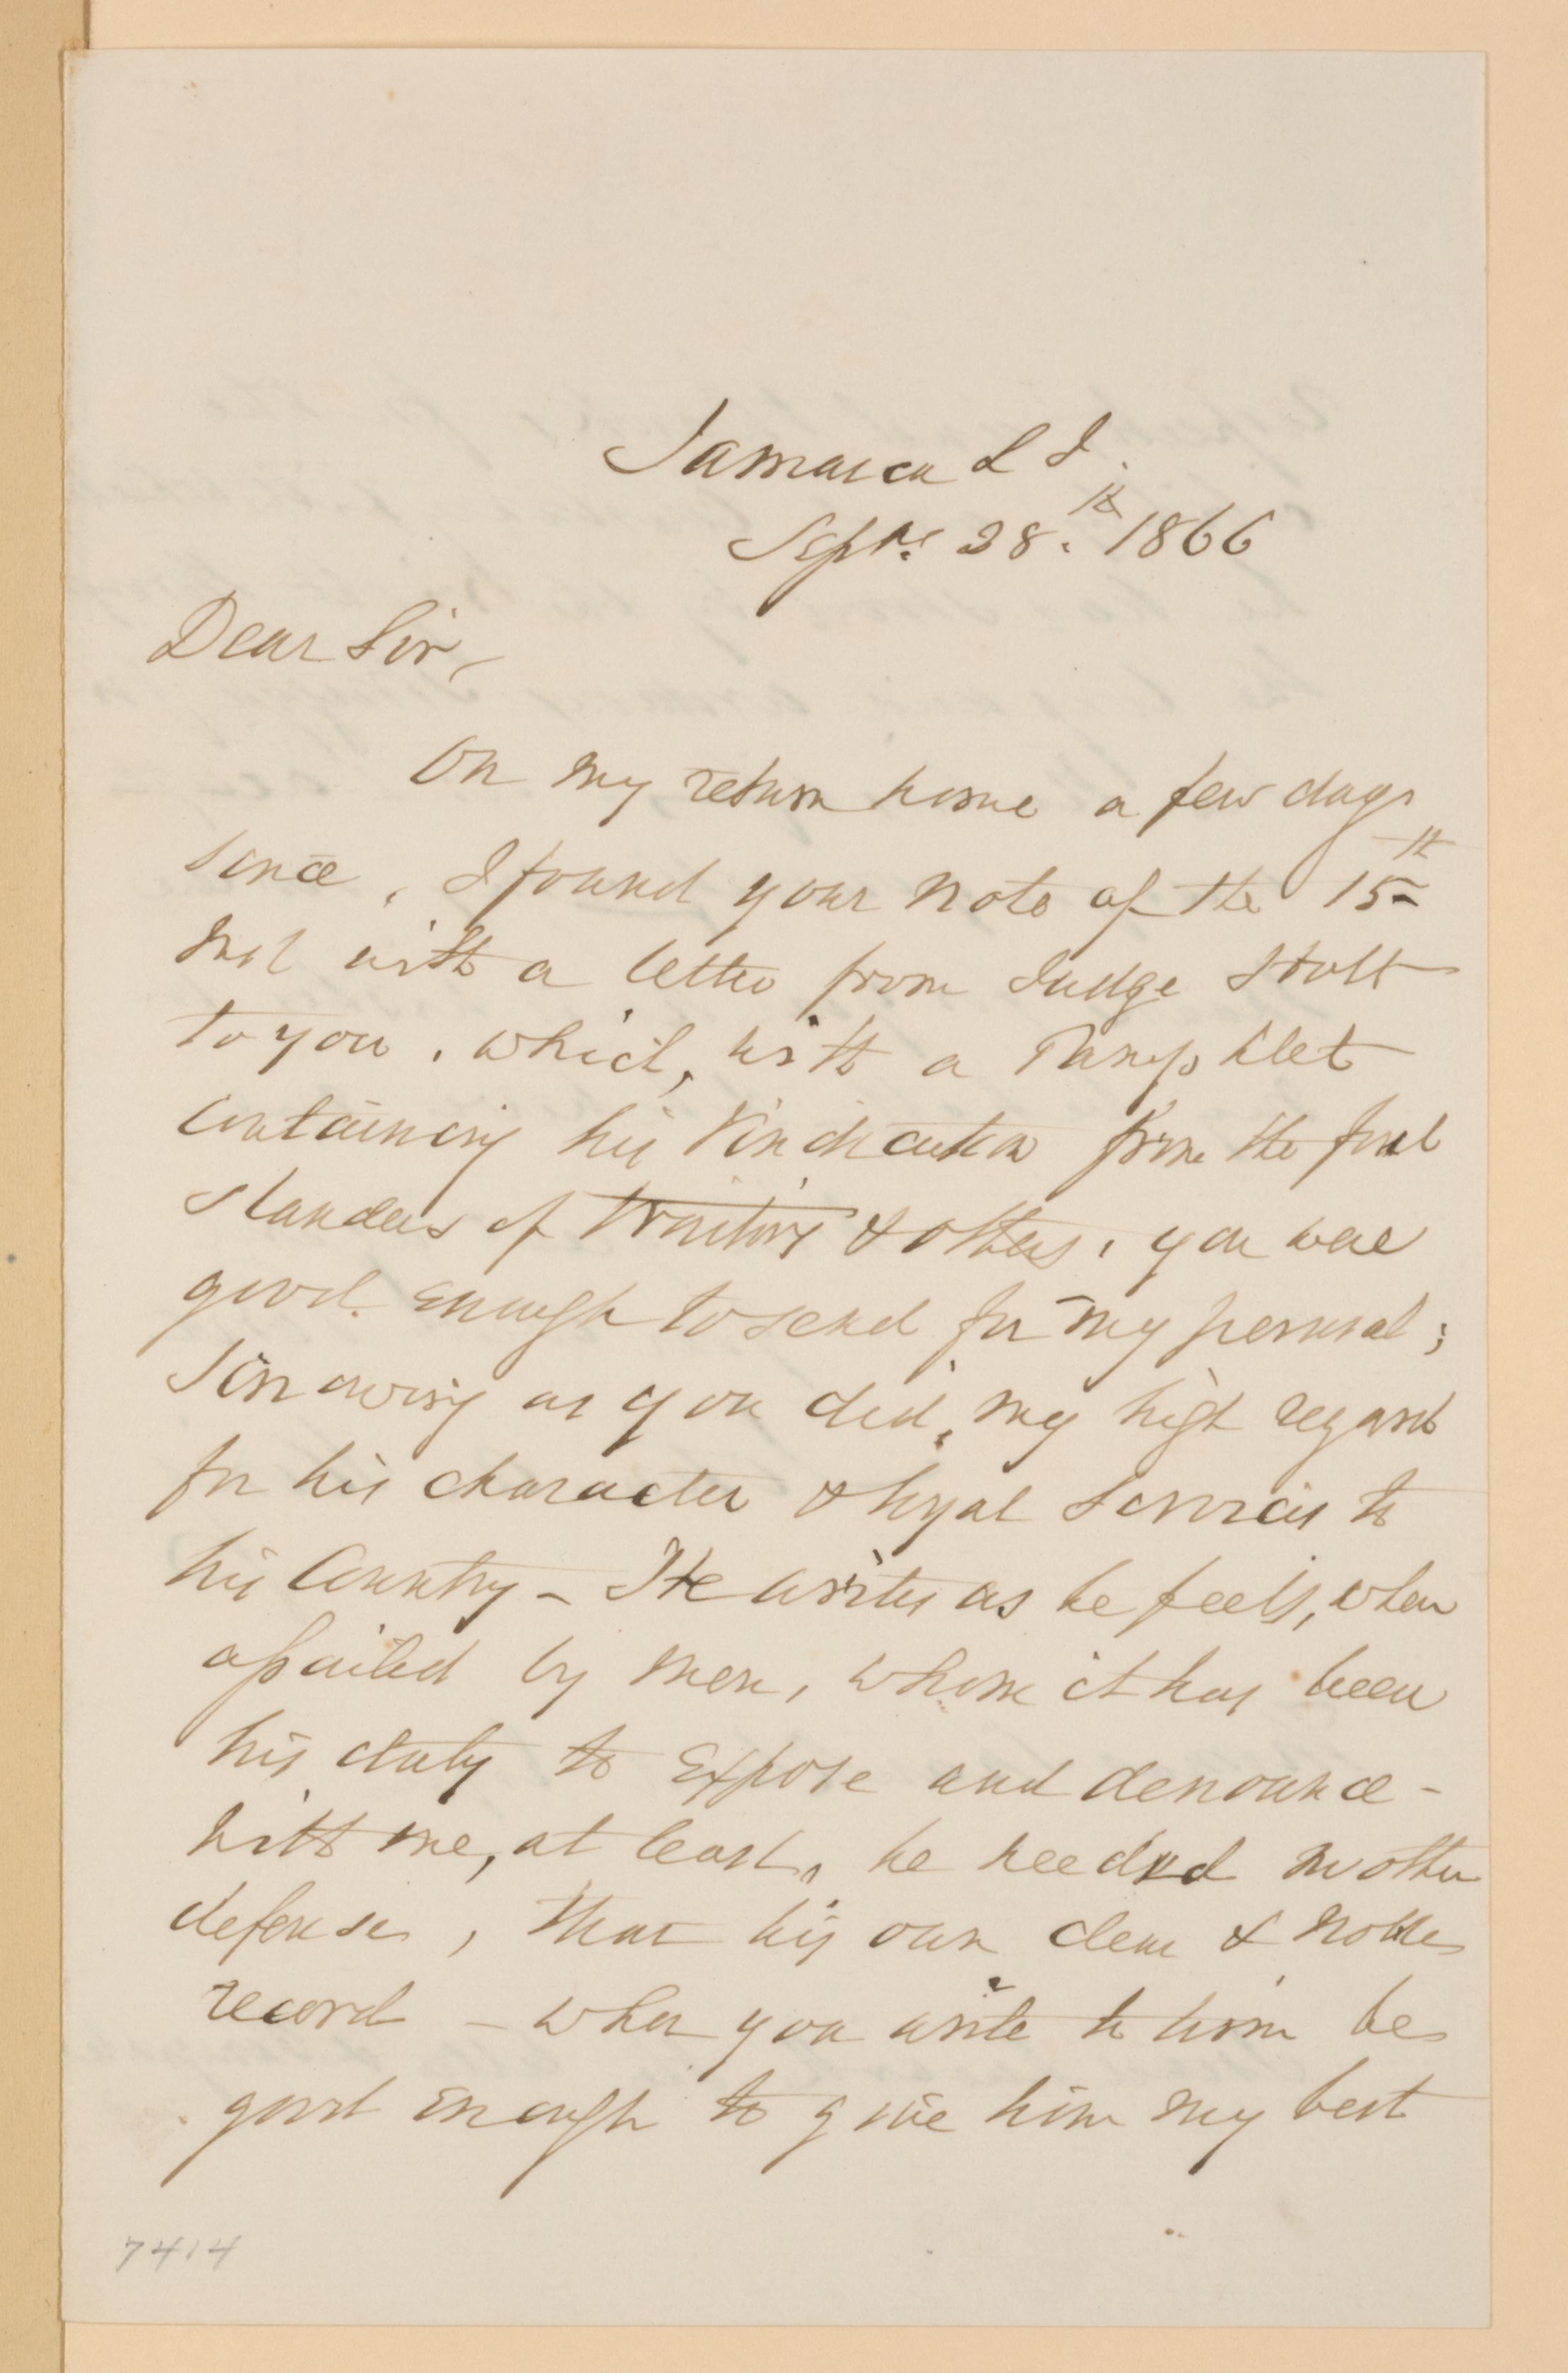 Jamaica L I.
Septr. 28.th 1866
Dear Sir,
On my return home a few days
since, I found your note of the 15th
Inst with a letter from Judge Holt
to you, which, with a Pamphlet
containing his Vindication from the foul
slanders of Traitors & others, you were
good enough to send for my perusal;
Knowing as you did, my high regard
for his character & loyal services to
his Country - He writes as he feels, when
assailed by men, whom it has been
his duty to expose and denounce -
With me, at least, he needed no other
defense, than his own clear & noble
record - When you write to him be
good enough to give him my best
7414